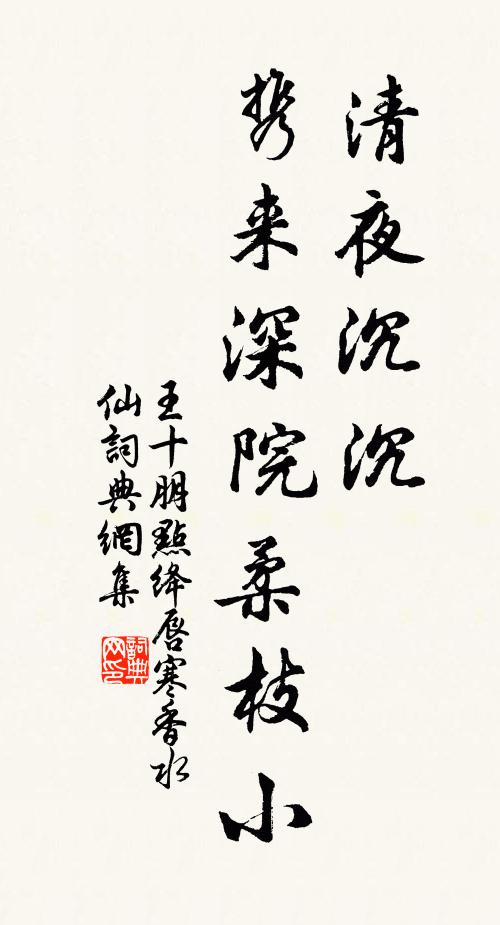 清夜沉沉
携来深院柔枝小
王十朋點絳唇寒香水
仙詞典網集
詞典
网印